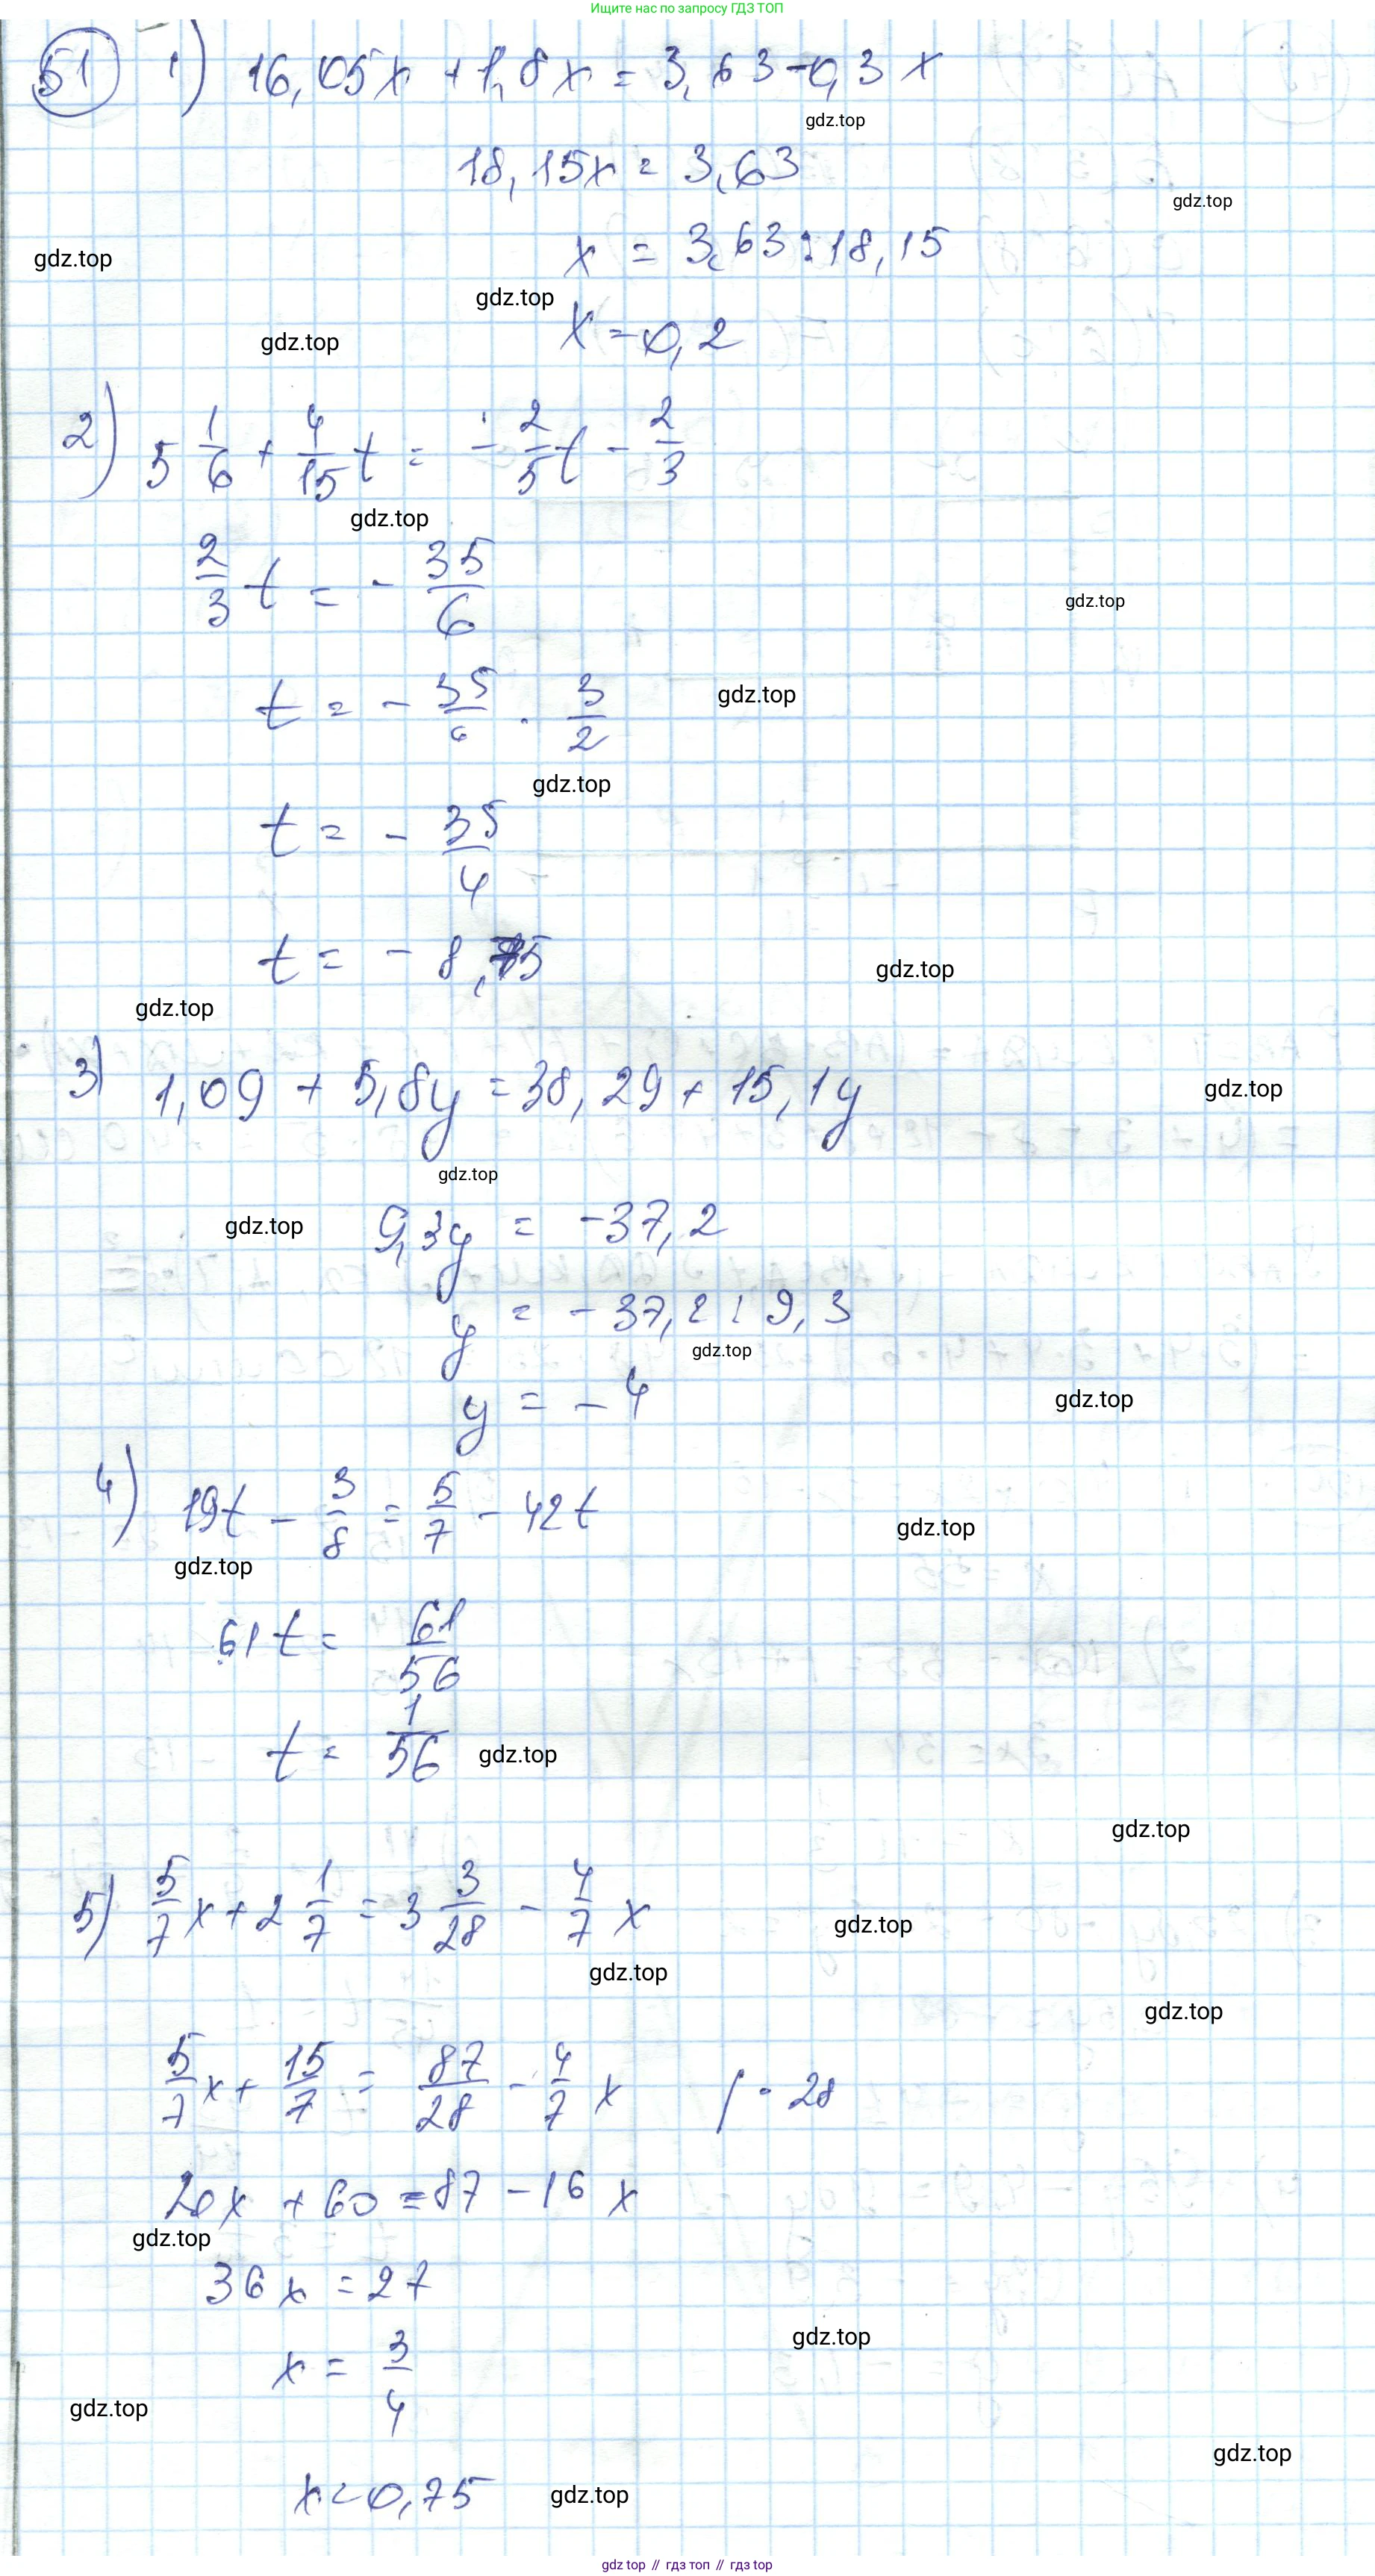 Ищите нас по запросу ГДЗ ТОП
51 1) 16,05x + 1,8x = 3,63 - 0,3x
gdz.top
18,15x = 3,63
gdz.top
x = 3,63 : 18,15
gdz.top
gdz.top
x = 0,2
gdz.top
2) 5 1/6 + 4/15 t = - 2/5 t - 2/3
gdz.top
2/3 t = - 35/6
gdz.top
t = - 35/6 · 3/2
gdz.top
gdz.top
t = - 35/4
t = - 8,75
gdz.top
gdz.top
3) 1,09 + 5,8y = 38,29 + 15,1y
gdz.top
gdz.top
9,3y = -37,2
gdz.top
y = -37,2 : 9,3
gdz.top
y = -4
gdz.top
4) 19t - 3/8 = 5/7 - 42t
gdz.top
gdz.top
61t = 61/56
t = 1/56
gdz.top
gdz.top
5) 5/7 x + 2 1/7 = 3 3/28 - 4/7 x
gdz.top
gdz.top
gdz.top
5/7 x + 15/7 = 87/28 - 4/7 x / · 28
20x + 60 = 87 - 16x
gdz.top
36x = 27
gdz.top
x = 3/4
gdz.top
gdz.top
x = 0,75
gdz.top
gdz top // гдз топ // gdz top